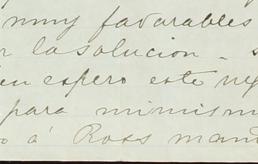 muy favorables
r la solucion - s
en espero este ne
para mi mism
o á Ross man